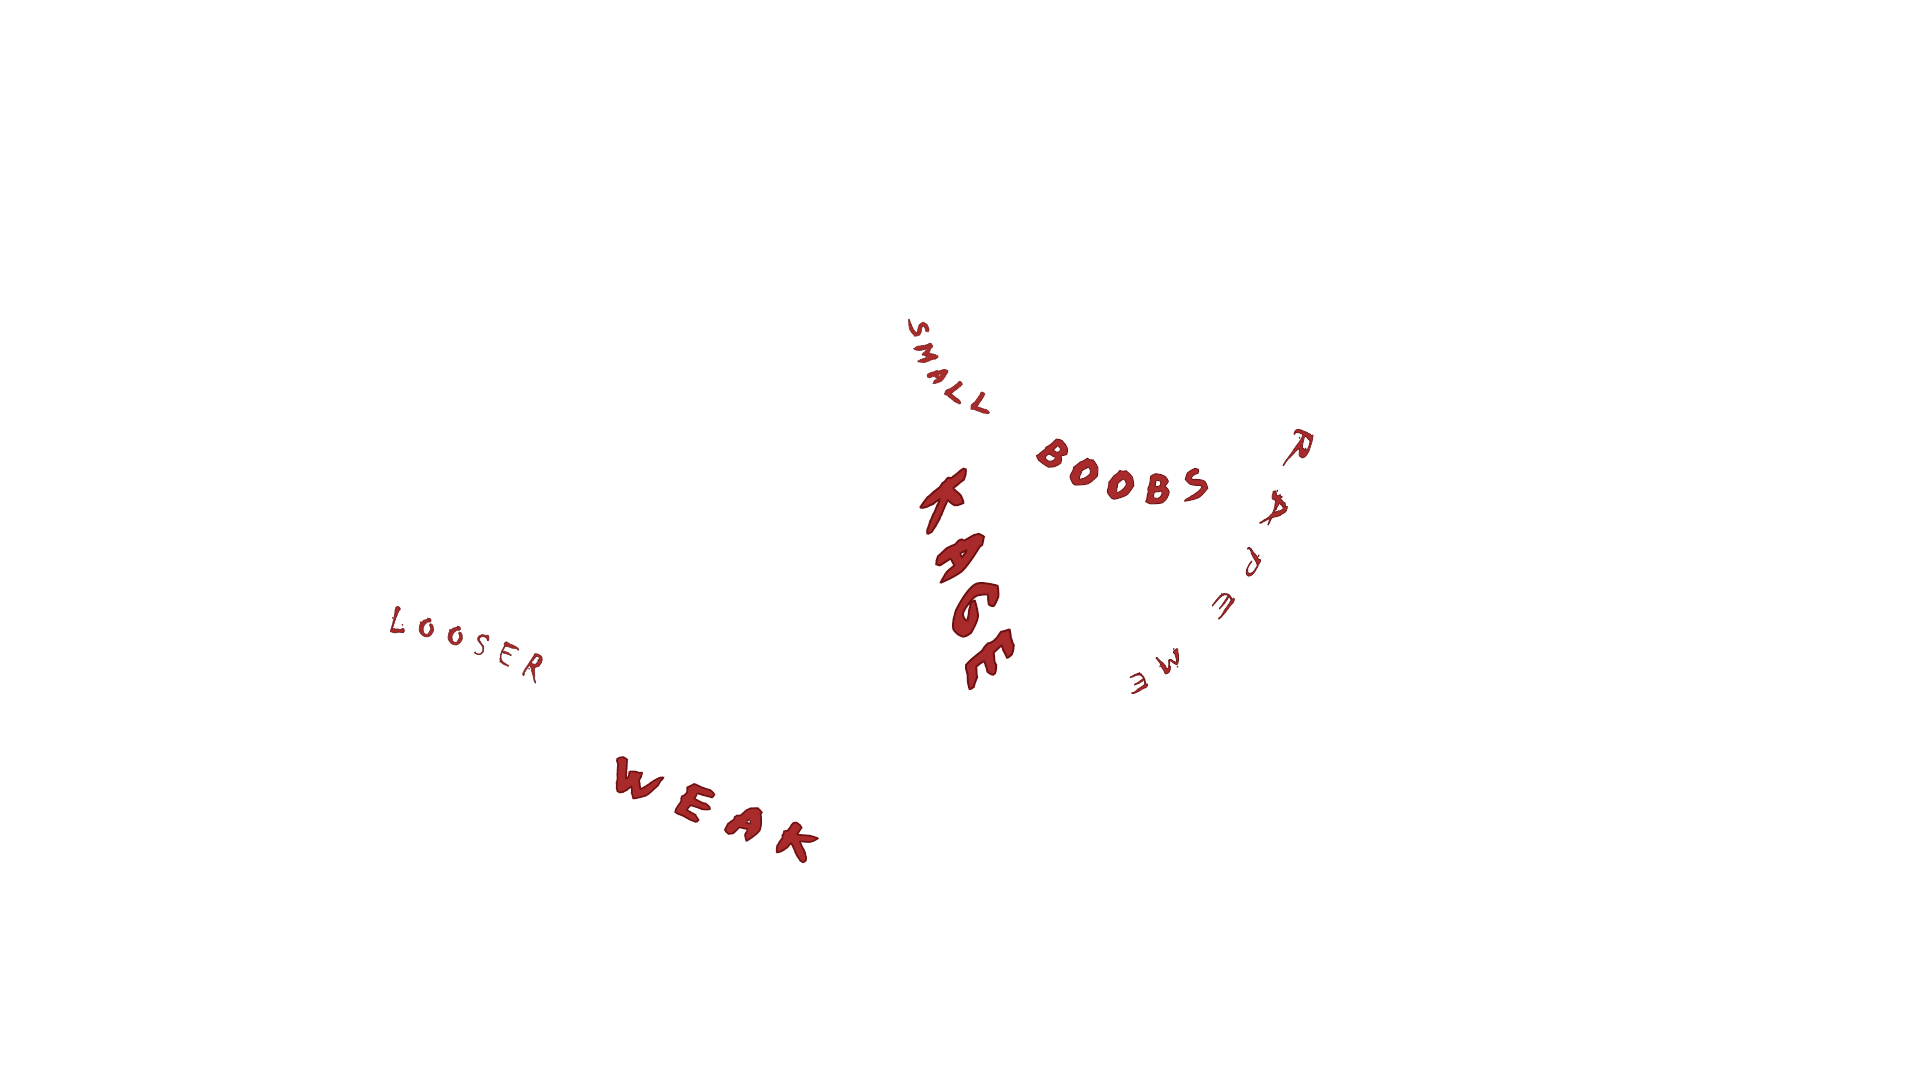 SMALL
BOOBS
RAPE
ME
KAGE
LOOSER
WEAK